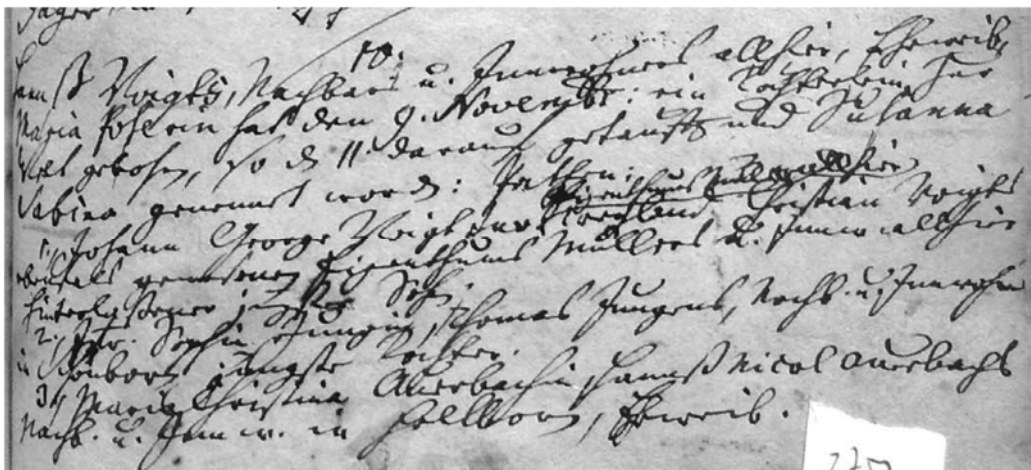 Jäger
10.
Hannß Voigts, Nachbars u. Innwohners allhier, Eheweib,
Maria Poserin hat den 9. Novembr: ein Töchterlein zur
Welt gebohren, so d 11. darauf getaufft und Susanna
Sabina genennet word: Pathen:
1., Johann George Voigt, Christian Voigts
gewesenen Eigenthums Müllers u. Innw. allhier
hinterlaßener jüngster Sohn
2., Jfr. Sophia Jungin, Thomas Jungens, Nachb. u. Innwohn
in jüngste Tochter.
3., Maria Christina Auerbachin, Hannß Nicol Auerbachs
Nachb. u. Innw. in Hellborn, Eheweib.